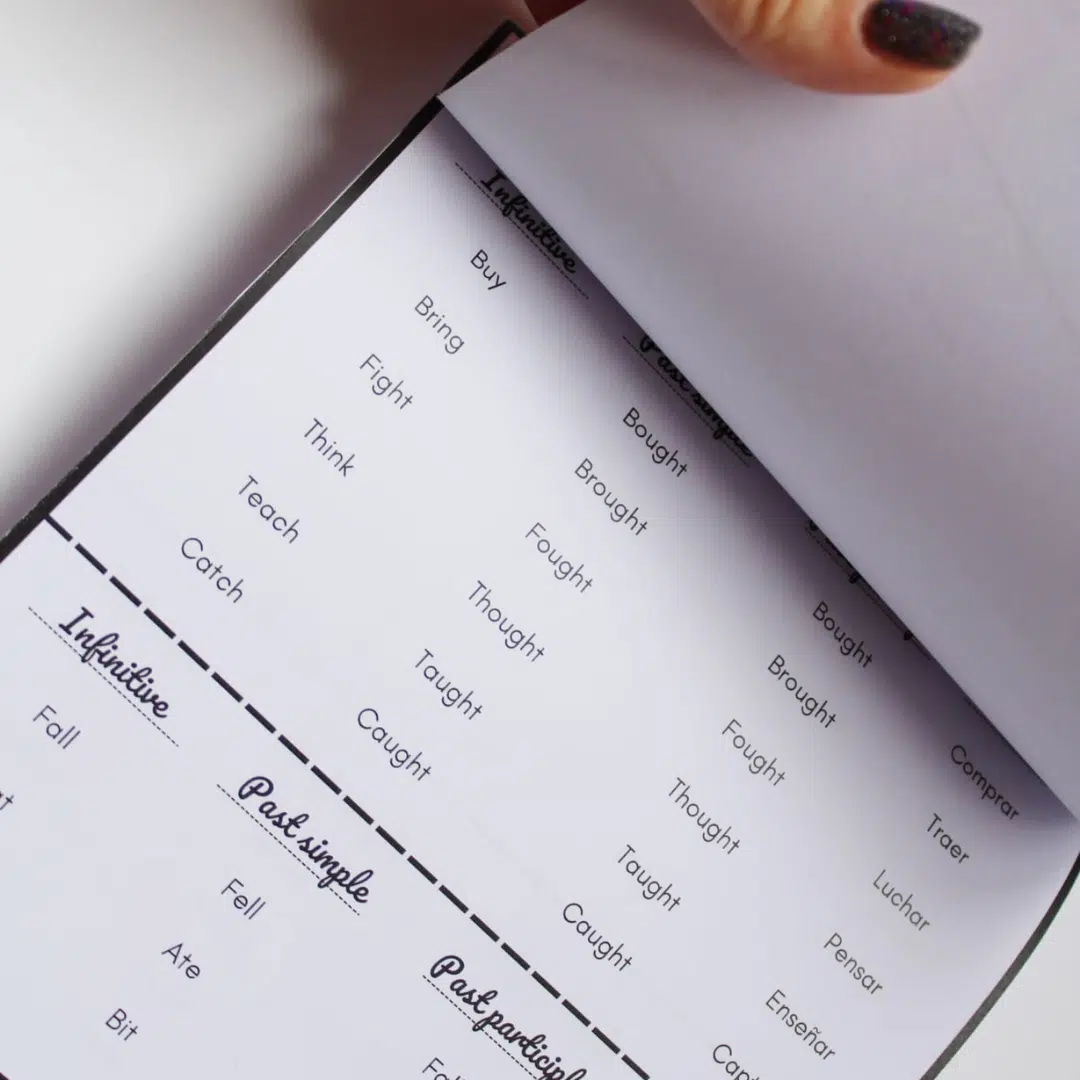 Infinitive Past simple
Buy Bought Bought Comprar
Bring Brought Brought Traer
Fight Fought Fought Luchar
Think Thought Thought Pensar
Teach Taught Taught Enseñar
Catch Caught Caught
Infinitive Past simple Past
Fall Fell
Ate
Bit